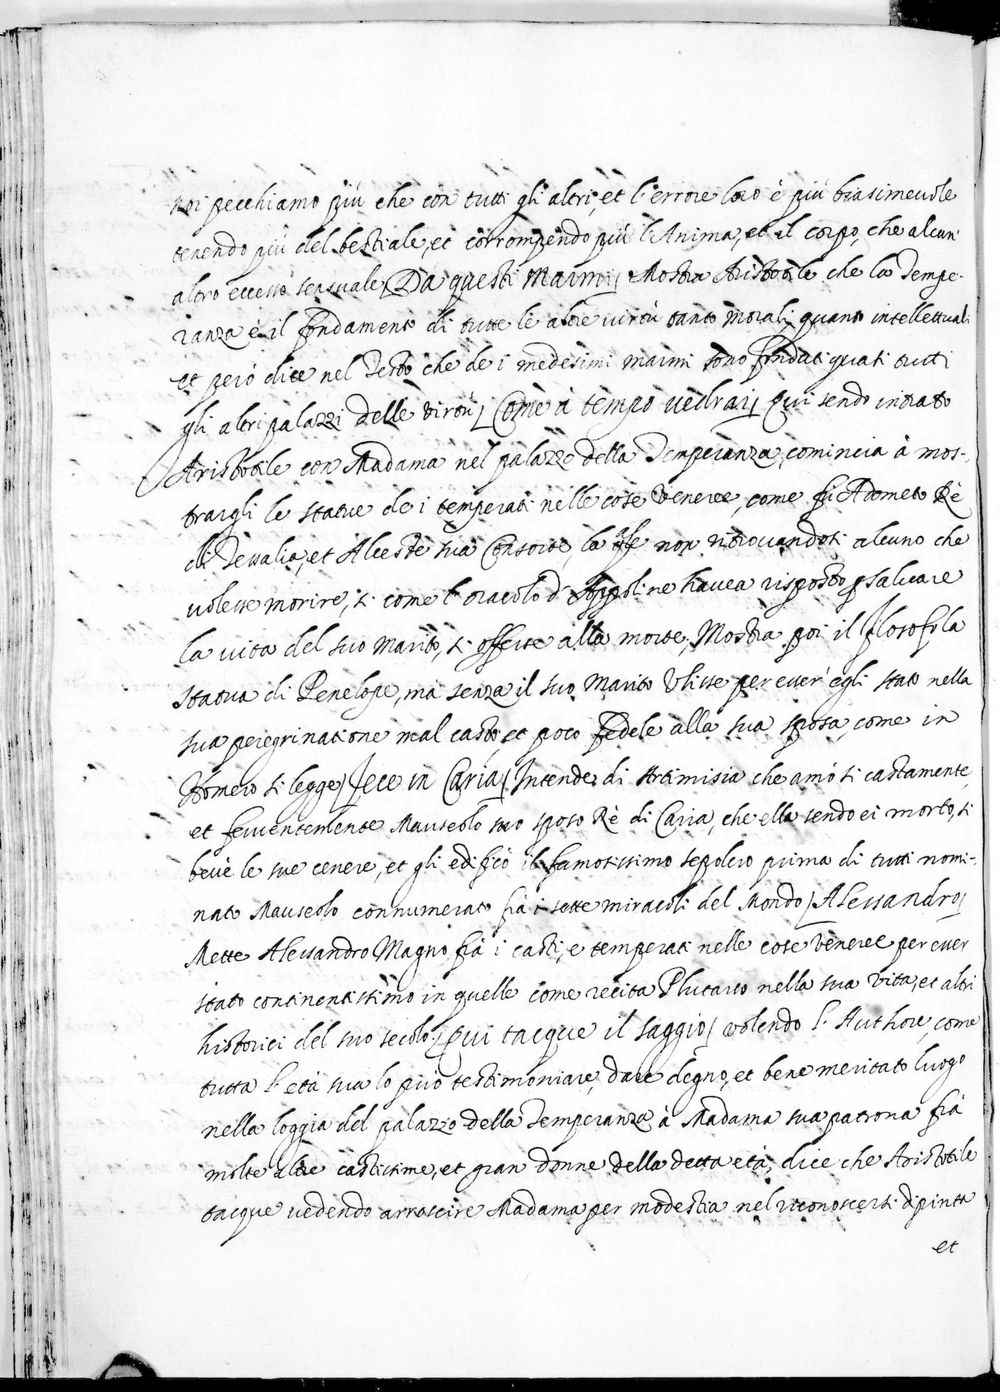 noi pecchiamo più che con tutti gli altri, et l'errore loro è più biasimevole
tenendo più del bestiale, et corrompendo più l'Anima, et il corpo, che alcun'
altro eccesso sensuale / Da questi Marmi / Mostra Aristotile che la Tempe-
ranza è il fondamento di tutte le altre virtù tanto morali quanto intellettuali
et però dice nel Testo che de i medesimi marmi sono fondati quasi tutti
gli altri palazzi delle virtù / Come à tempo vedrai / Qui sendo intrato
Aristotile con Madama nel palazzo della Temperanza, comincia à mos-
trargli le statue de i temperati nelle cose Veneree, come fù Admeto Rè
di Tessalia, et Alceste sua Consorte, la qle non ritrovandosi alcuno che
volesse morire, si come l'oracolo d'Appoline havea risposto p salvare
la vita del suo Marito, si offerse alla morte, Mostra poi il filosofo la
statua di Penelope, ma senza il suo Marito Ulisse per esser egli stato nella
sua peregrinatione mal casto, et poco fedele alla sua sposa, come in
Homero si legge / Fece in Caria / Intende di Artimisia che amò si castamente,
et ferventemente Mauseolo suo sposo Rè di Caria, che ella sendo ei morto, si
bevè le sue cenere, et gli edificò il famosissimo sepolcro prima di tutti nomi-
nato Mauseolo connumerato frà i sette miracoli del Mondo / Alessandro /
Mette Alessandro Magno frà i casti, e temperati nelle cose Veneree per esser
stato continentissimo in quelle come recita Plutarco nella sua Vita, et altri
historici del suo secolo. / Qui tacque il saggio / volendo l'Authore, come
tutta l'età sua lo può testimoniare, dare degno, et bene meritato luogo
nella loggia del palazzo della Temperanza à Madama sua patrona frà
molte altre castissime, et gran donne della detta età, dice che Aristotile
tacque vedendo arrossire Madama per modestia nel riconoscersi dipinta
et